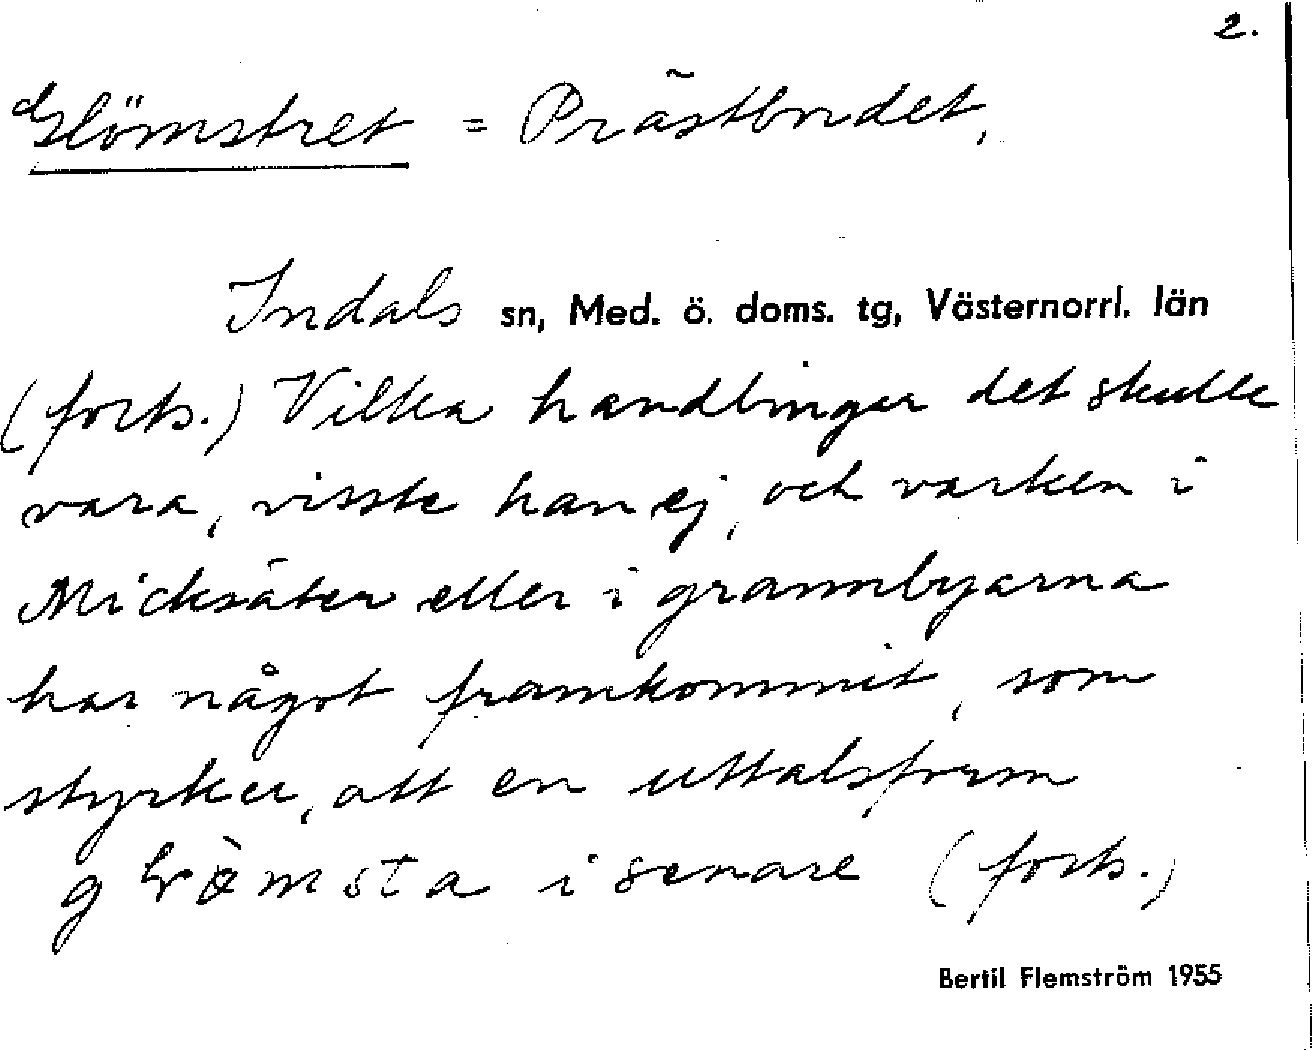 2.
Glömstret = Prästbordet,
Indals sn, Med. ö. doms. tg, Västernorrl. län
(forts.) Vilka handlingar det skulle
vara, visste han ej, och varken i
Micksäter eller i grannbyarna
har något framkommit, som
styrker, att en uttalsform
i senare (forts.)
Bertil Flemström 1955